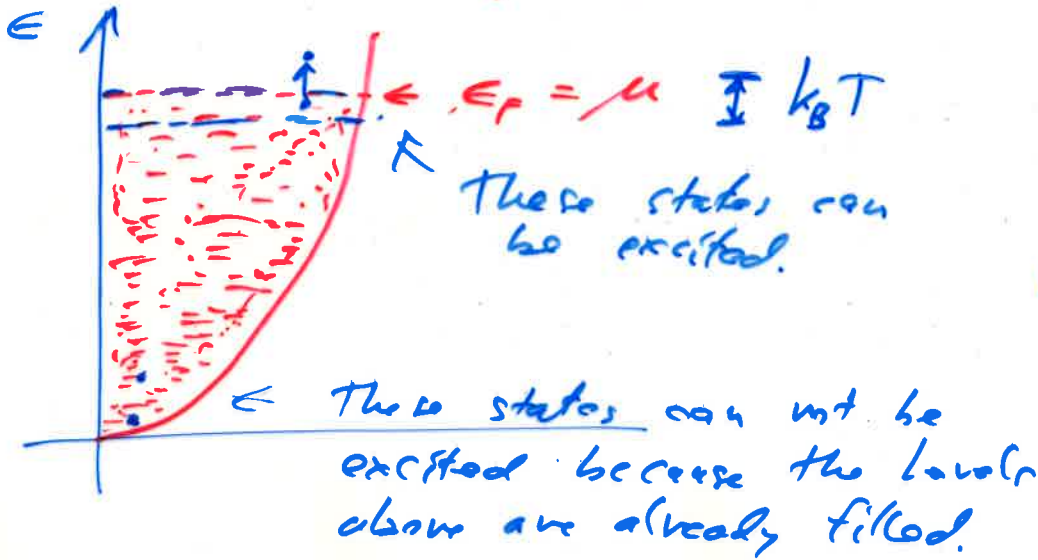 ϵ
← ϵ_F = μ k_B T
These states can
be excited.
← These states can not be
excited because the levels
above are already filled.